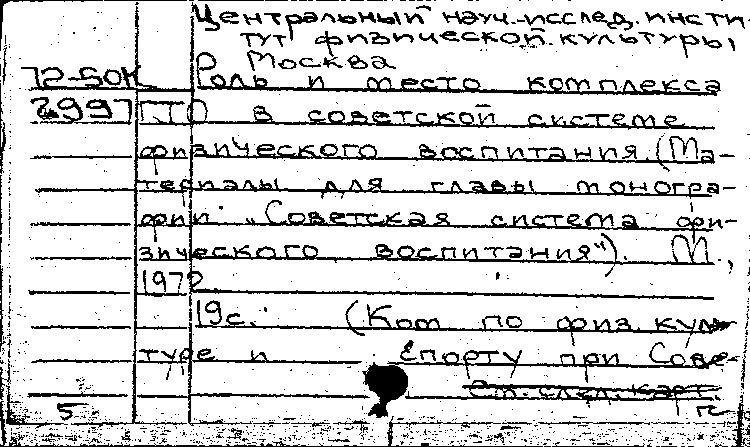 Центральный науч.-исслед. инсти-
тут физической культуры,
Москва
72-50К Роль и место комплекса
2997 ГТО в советской системе
физического воспитания. (Ма-
териалы для главы моногра-
фии "Советская система фи-
зического воспитания"). М.,
1972.
19с. (Ком по физ. куль-
туре и спорту при Сове-
См. след. карт.
5